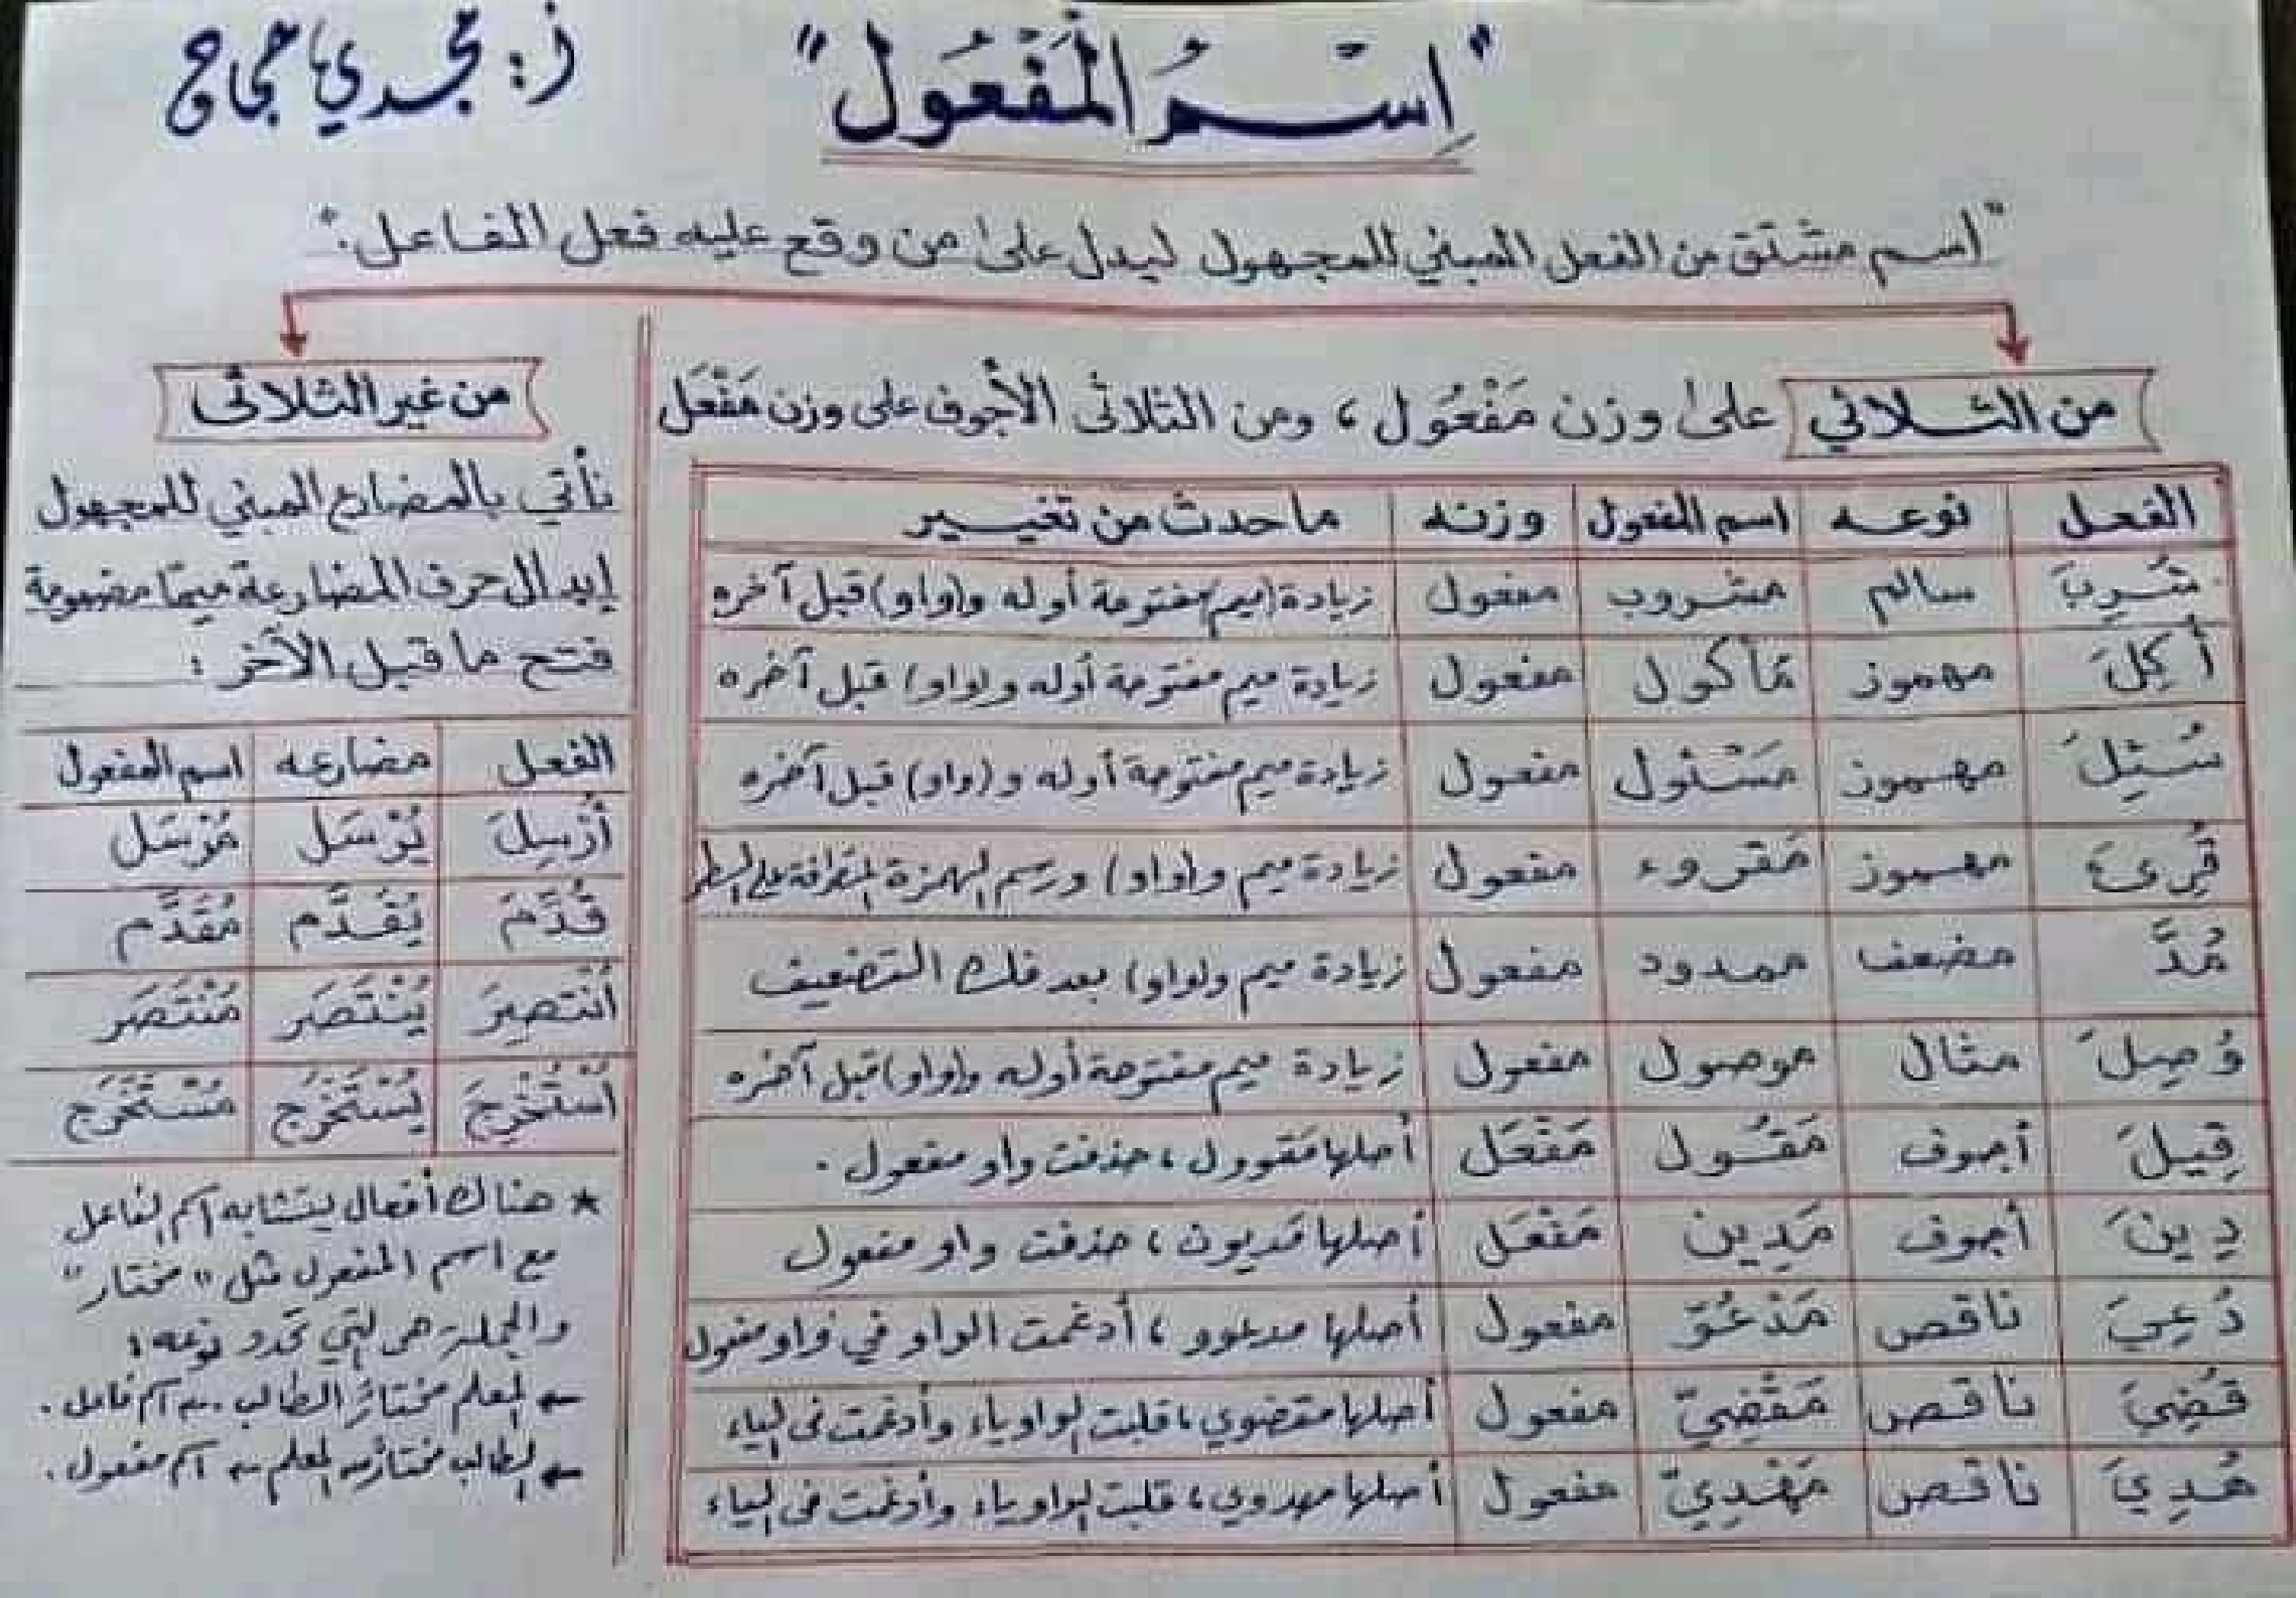 "اِسْمُ الْمَفْعُول"
أ: مجدي حجاج
"اسم مشتق من الفعل المبني للمجهول ليدل على من وقع عليه فعل الفاعل."
من الثلاثي على وزن مَفْعُول، ومن الثلاثى الأجوف على وزن مَفْعَل
الفعل نوعه اسم المفعول وزنه ما حدث من تغيير
شُرِبَ سالم مشروب مفعول زيادة (ميم) مفتوحة أوله و(واو) قبل آخره
أُكِلَ مهموز مَأكول مفعول زيادة ميم مفتوحة أوله و(واو) قبل آخره
سُئِلَ مهموز مَسْئول مفعول زيادة ميم مفتوحة أوله و(واو) قبل آخره
قُرِئَ مهموز مَقروء مفعول زيادة ميم و(واو) ورسم الهمزة المتطرفة على السطر
مُدَّ مضعف ممدود مفعول زيادة ميم و(واو) بعد فك التضعيف
وُصِلَ مثال موصول مفعول زيادة ميم مفتوحة أوله و(واو) قبل آخره
قِيلَ أجوف مَقُول مَفْعَل أصلها مَقوول، حذفت واو مفعول.
دِينَ أجوف مَدِين مَفْعَل أصلها مَديون، حذفت واو مفعول
دُعِيَ ناقص مَدْعُوّ مفعول أصلها مدعوو، أدغمت الواو في واو مفعول
قُضِيَ ناقص مَقْضِيّ مفعول أصلها مقضوي، قلبت الواو ياء وأدغمت فى الياء
هُدِيَ ناقص مَهْدِيّ مفعول أصلها مهدوي، قلبت الواو ياء وأدغمت فى الياء
من غير الثلاثى
نأتي بالمضارع المبني للمجهول
إبدال حرف المضارعة ميمًا مضمومة
فتح ما قبل الآخر:
الفعل مضارعه اسم المفعول
أُرْسِلَ يُرْسَل مُرْسَل
قُدِّمَ يُقَدَّم مُقَدَّم
اُنْتُصِرَ يُنْتَصَر مُنْتَصَر
اُسْتُخْرِجَ يُسْتَخْرَج مُسْتَخْرَج
★ هناك أفعال يتشابه اسم الفاعل
مع اسم المفعول مثل "مختار"
والجملة هى التي تحدد نوعه:
المعلم مختارٌ الطالب. اسم فاعل.
الطالب مختارٌ من المعلم اسم مفعول.